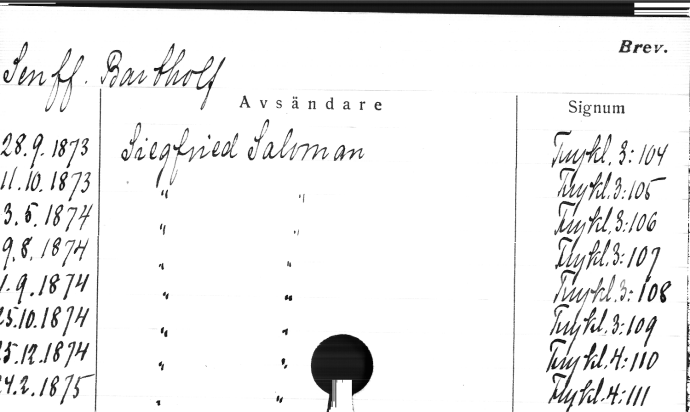 Brev.
Senff. Bartholf
Avsändare Signum
28.9.1873 Siegfried Saloman Trykl. 3:104
11.10.1873 " " Trykl. 3:105
3.5.1874 " " Trykl. 3:106
9.8.1874 " " Trykl. 3:107
1.9.1874 " " Trykl. 3:108
25.10.1874 " " Trykl. 3:109
25.12.1874 " " Trykl. 4:110
24.2.1875 " " Trykl. 4:111